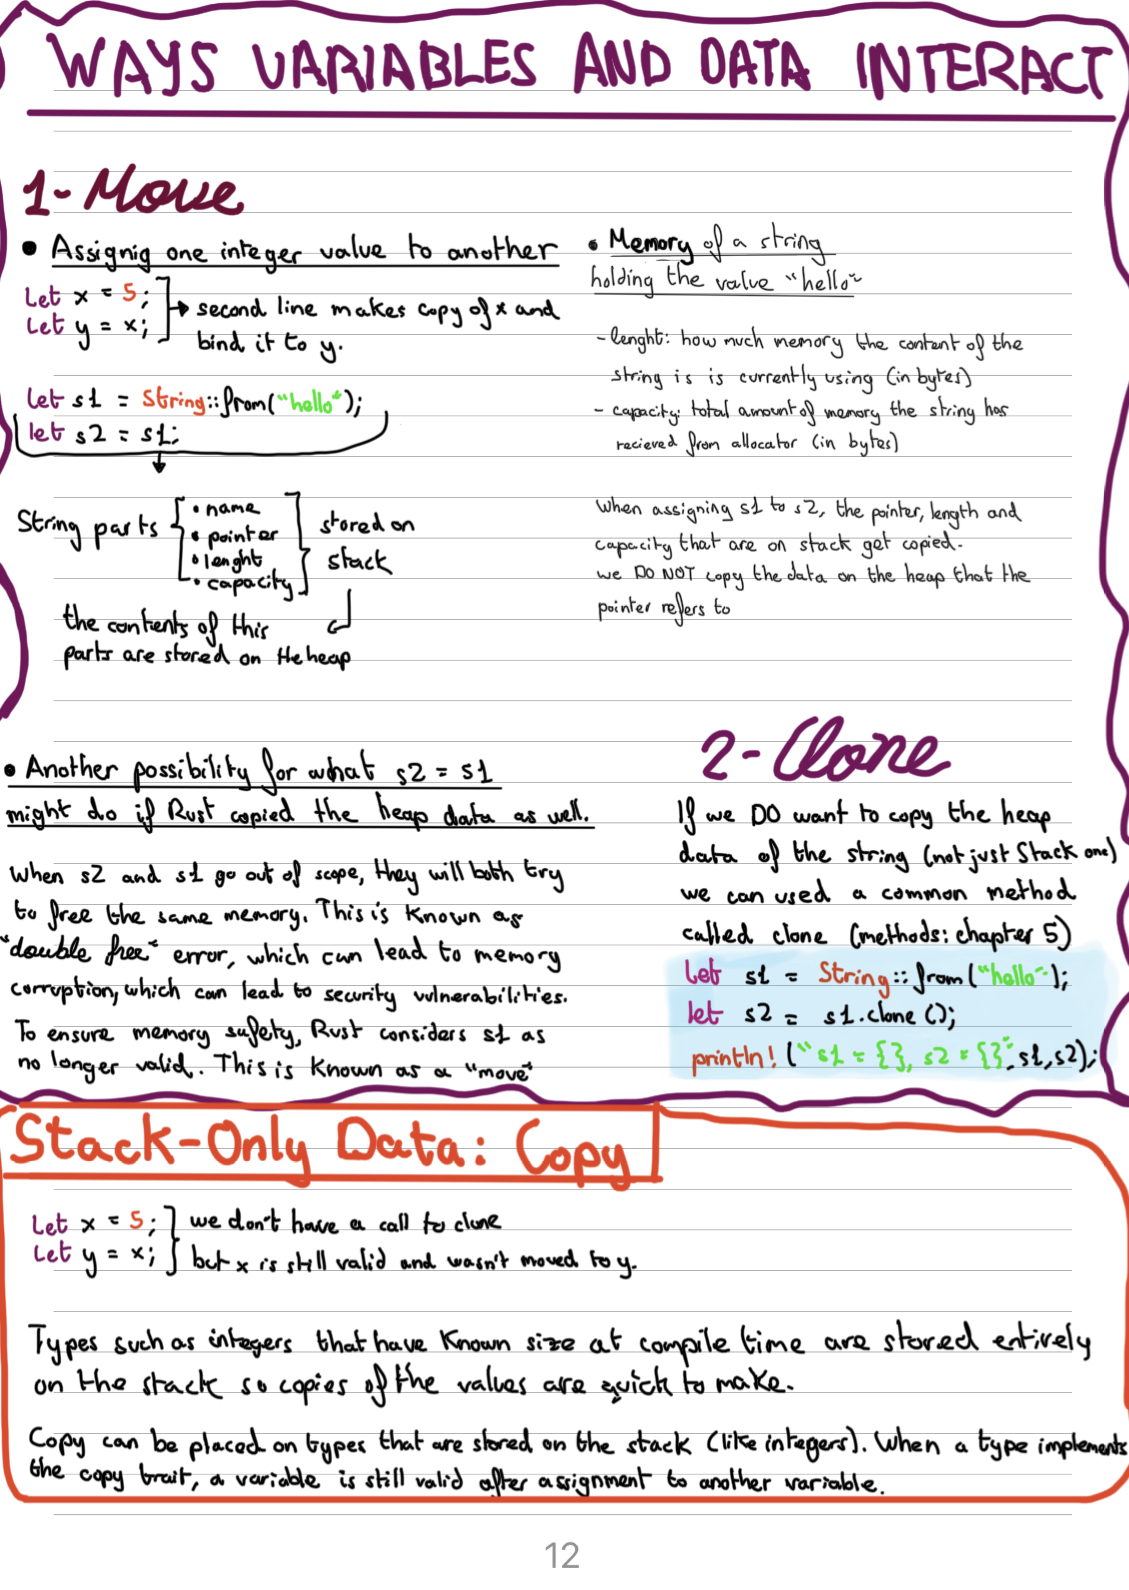 WAYS VARIABLES AND DATA INTERACT
1- Move
• Assignig one integer value to another
let x = 5;
let y = x;
→ second line makes copy of x and
bind it to y.
let s1 = String::from("hello");
let s2 = s1;
String parts
• name
• pointer
• lenght
• capacity
stored on
stack
the contents of this
parts are stored on the heap
• Memory of a string
holding the value "hello"
- lenght: how much memory the content of the
string is is currently using (in bytes)
- capacity: total amount of memory the string has
recieved from allocator (in bytes)
when assigning s1 to s2, the pointer, length and
capacity that are on stack get copied.
we DO NOT copy the data on the heap that the
pointer refers to
• Another possibility for what s2 = s1
might do if Rust copied the heap data as well.
when s2 and s1 go out of scope, they will both try
to free the same memory. This is known as
"double free" error, which can lead to memory
corruption, which can lead to security vulnerabilities.
To ensure memory safety, Rust considers s1 as
no longer valid. This is known as a "move"
2- Clone
If we DO want to copy the heap
data of the string (not just Stack one)
we can used a common method
called clone (methods: chapter 5)
let s1 = String::from("hello");
let s2 = s1.clone();
println! ("s1 = {}, s2 = {}", s1, s2);
Stack-Only Data: Copy
let x = 5;
let y = x;
we don't have a call to clone
but x is still valid and wasn't moved to y.
Types such as integers that have known size at compile time are stored entirely
on the stack so copies of the values are quick to make.
Copy can be placed on types that are stored on the stack (like integers). When a type implements
the copy trait, a variable is still valid after assignment to another variable.
12